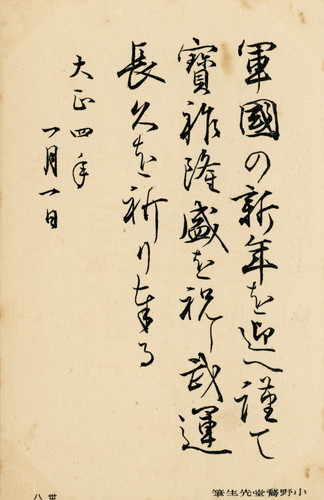 軍國の新年を迎へ謹て
寳祚隆盛を祝し武運
長久を祈り奉る
大正四年
一月一日
小野鵞堂先生筆
卅八